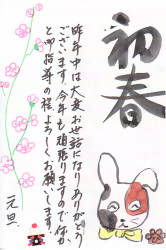 初春
昨年中は大変お世話になりありがとう
ございます。今年も頑張りますので何か
と御指導の程よろしくお願いします。
元旦